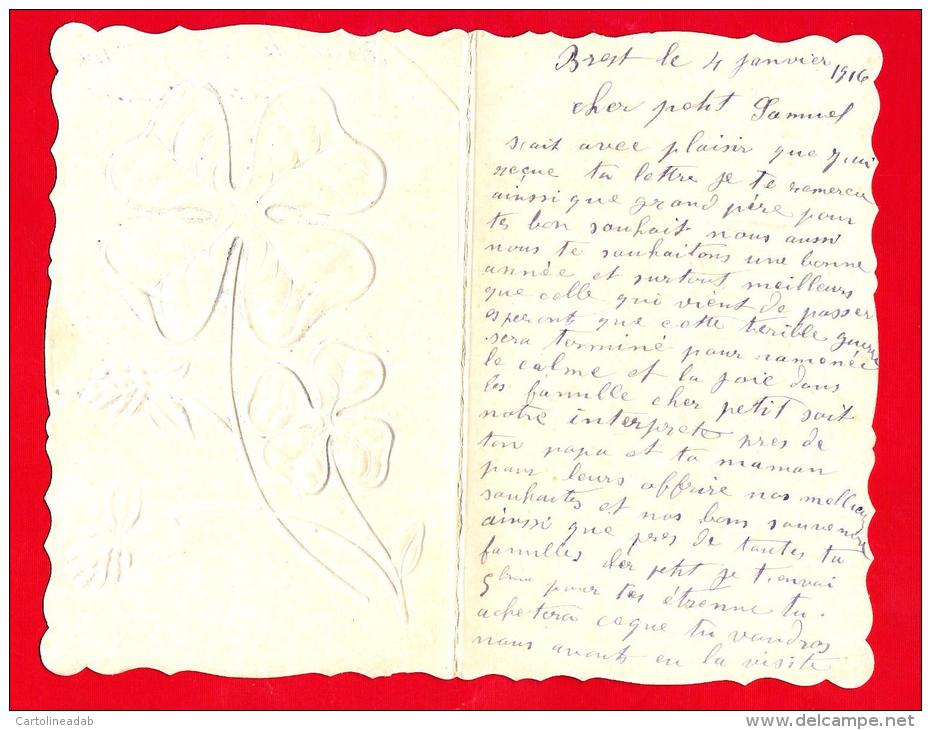 Brest le 4 janvier 1916
cher petit Samuel
s'ait avec plaisir que j'ai
reçue ta lettre je te remercie
ainssi que grand père pour
tes bon souhait nous aussi
nous te souhaitons une bonne
année et surtout meilleurs
que celle qui vient de passer
esperont que cette terible guerre
sera terminé pour ramenée
le calme et la joie dans
les famille cher petit soit
notre interprete pres de
ton papa et ta maman
pour leurs offrire nos meilleur
souhaites et nos bons souvenire
ainssi que pres de toutes ta
familles cher petit je t'envoi
5 pour tes étrenne tu
achetera ceque tu voudras
nous avont eu la visite
Cartolineadab
www.delcampe.net